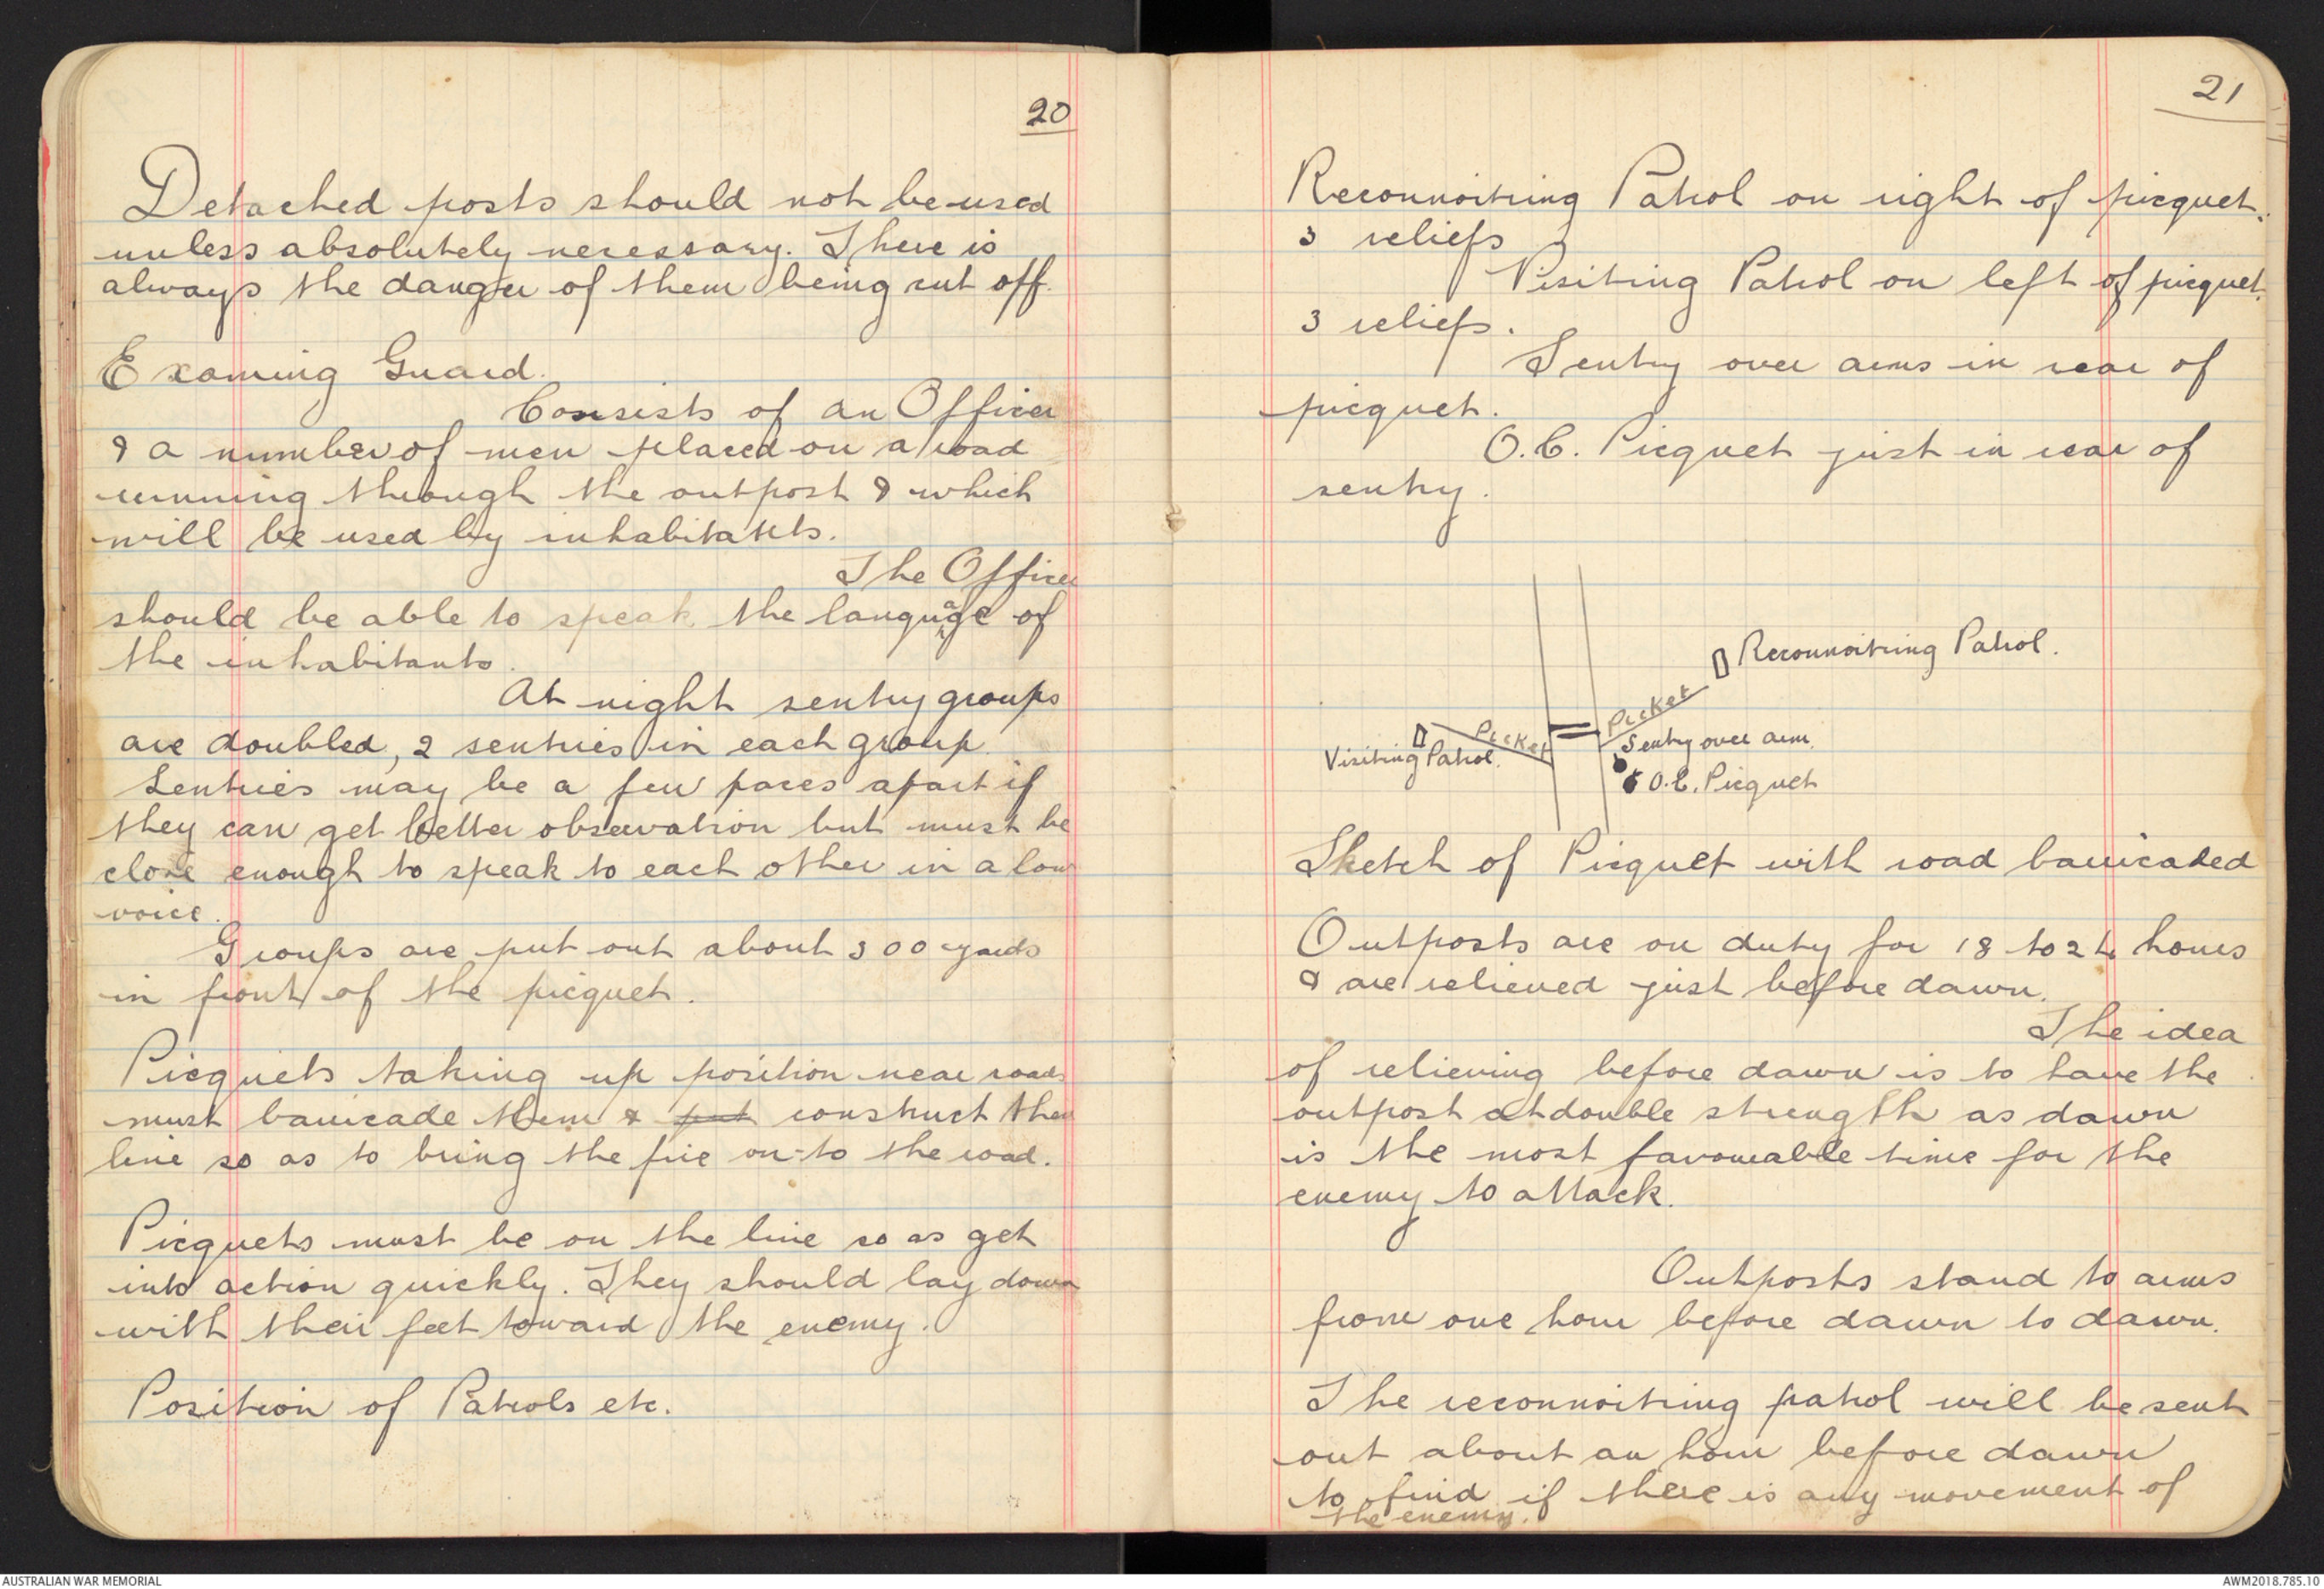 20
Detached posts should not be used
unless absolutely necessary. There is
always the danger of them being cut off.
Examing Guard.
Consists of an Officer
& a number of men placed on a road
running through the outpost & which
will be used by inhabitants.
The Officer
should be able to speak the language of
the inhabitants.
At night sentry groups
are doubled, 2 sentries in each group.
Sentries may be a few paces apart if
they can get better observation but must be
close enough to speak to each other in a low
voice.
Groups are put out about 300 yards
in front of the picquet.
Picquets taking up position near roads
must barricade them & put construct their
line so as to bring the fire on-to the road.
Picquets must be on the line so as get
into action quickly. They should lay down
with their feet toward the enemy.
Position of Patrols etc.
21
Reconnoitring Patrol on right of picquet.
3 reliefs
Visiting Patrol on left of picquet.
3 reliefs.
Sentry over arms in rear of
picquet.
O.C. Picquet just in rear of
sentry.
Reconnoitring Patrol.
Picket
Picket
Sentry over arm.
Visiting Patrol.
O.C. Picquet
Sketch of Picquet with road barricaded
Outposts are on duty for 18 to 24 hours
& are relieved just before dawn.
The idea
of relieving before dawn is to have the
outpost at double strength as dawn
is the most favourable time for the
enemy to attack.
Outposts stand to arms
from one hour before dawn to dawn.
The reconnoitring patrol will be sent
out about an hour before dawn
to find if there is any movement of
the enemy.
AUSTRALIAN WAR MEMORIAL
AWM2018.785.10